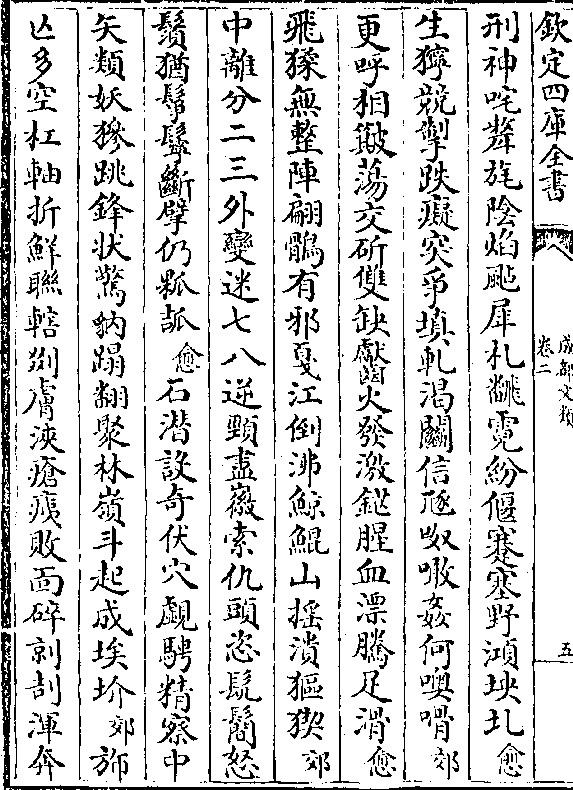 欽定四庫全書
成都文類
卷二
五
刑神咤犛旄陰焰颭犀札飜霓紛偃蹇塞野澒坱圠愈
生獰競掣跌癡突爭填軋渴鬬信豗呶噉姦何噢嗗郊
更呼相簸蕩交斫雙缺齾火發激鋩腥血漂騰足滑愈
飛猱無整陣翩鶻有邪戛江倒沸鯨鯤山搖潰貙猰郊
中離分二三外變迷七八逆頸盡徽索仇頭恣髠鬝怒
鬚猶鬇鬡斷臂仍愈石潛設奇伏穴覷騁精察中
矢類妖㺑跳鋒狀驚豽蹋翻聚林嶺斗起成埃圿郊旆
亾多空杠軸折鮮聯轄剟膚浹瘡痍敗面碎剠刮渾奔